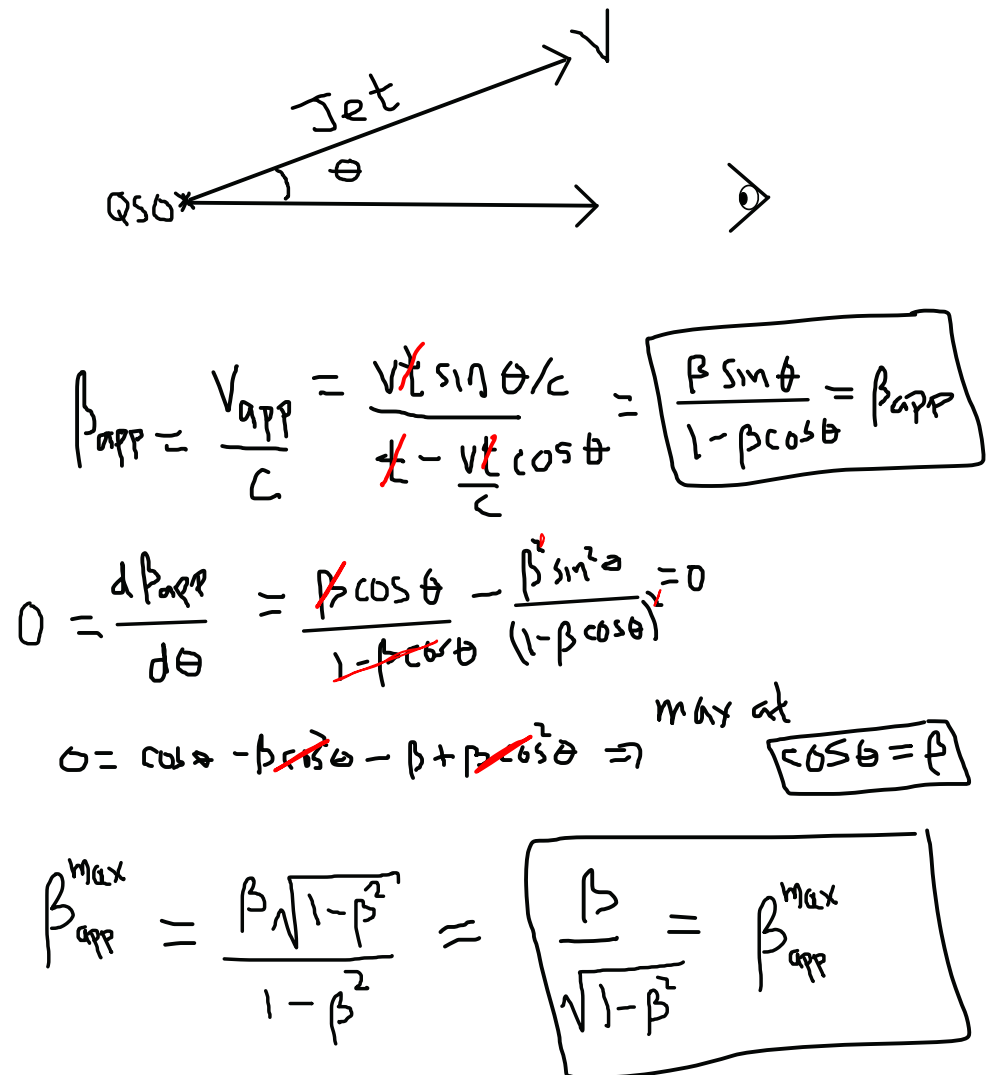 V
Jet
θ
QSO
β_app = V_app / C = (Vt sin θ/c) / (t - (Vt/c) cos θ) = β sin θ / (1 - β cos θ) = β_app
0 = dβ_app / dθ = β cos θ / (1 - β cos θ) - β² sin² θ / (1 - β cos θ)² = 0
max at
0 = cos θ - β cos² θ - β + β cos² θ ⇒ cos θ = β
β_app^max = β√(1 - β²) / (1 - β²) = β / √(1 - β²) = β_app^max